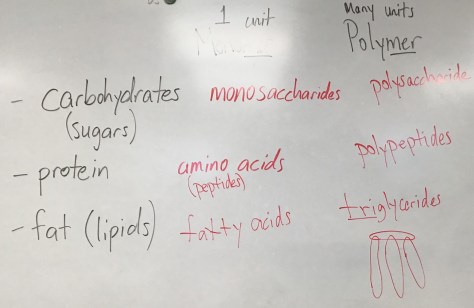 1 unit Many units
Polymer
- Carbohydrates monosaccharides polysaccharide
(sugars)
- protein amino acids polypeptides
(peptides)
- fat (lipids) fatty acids triglycerides